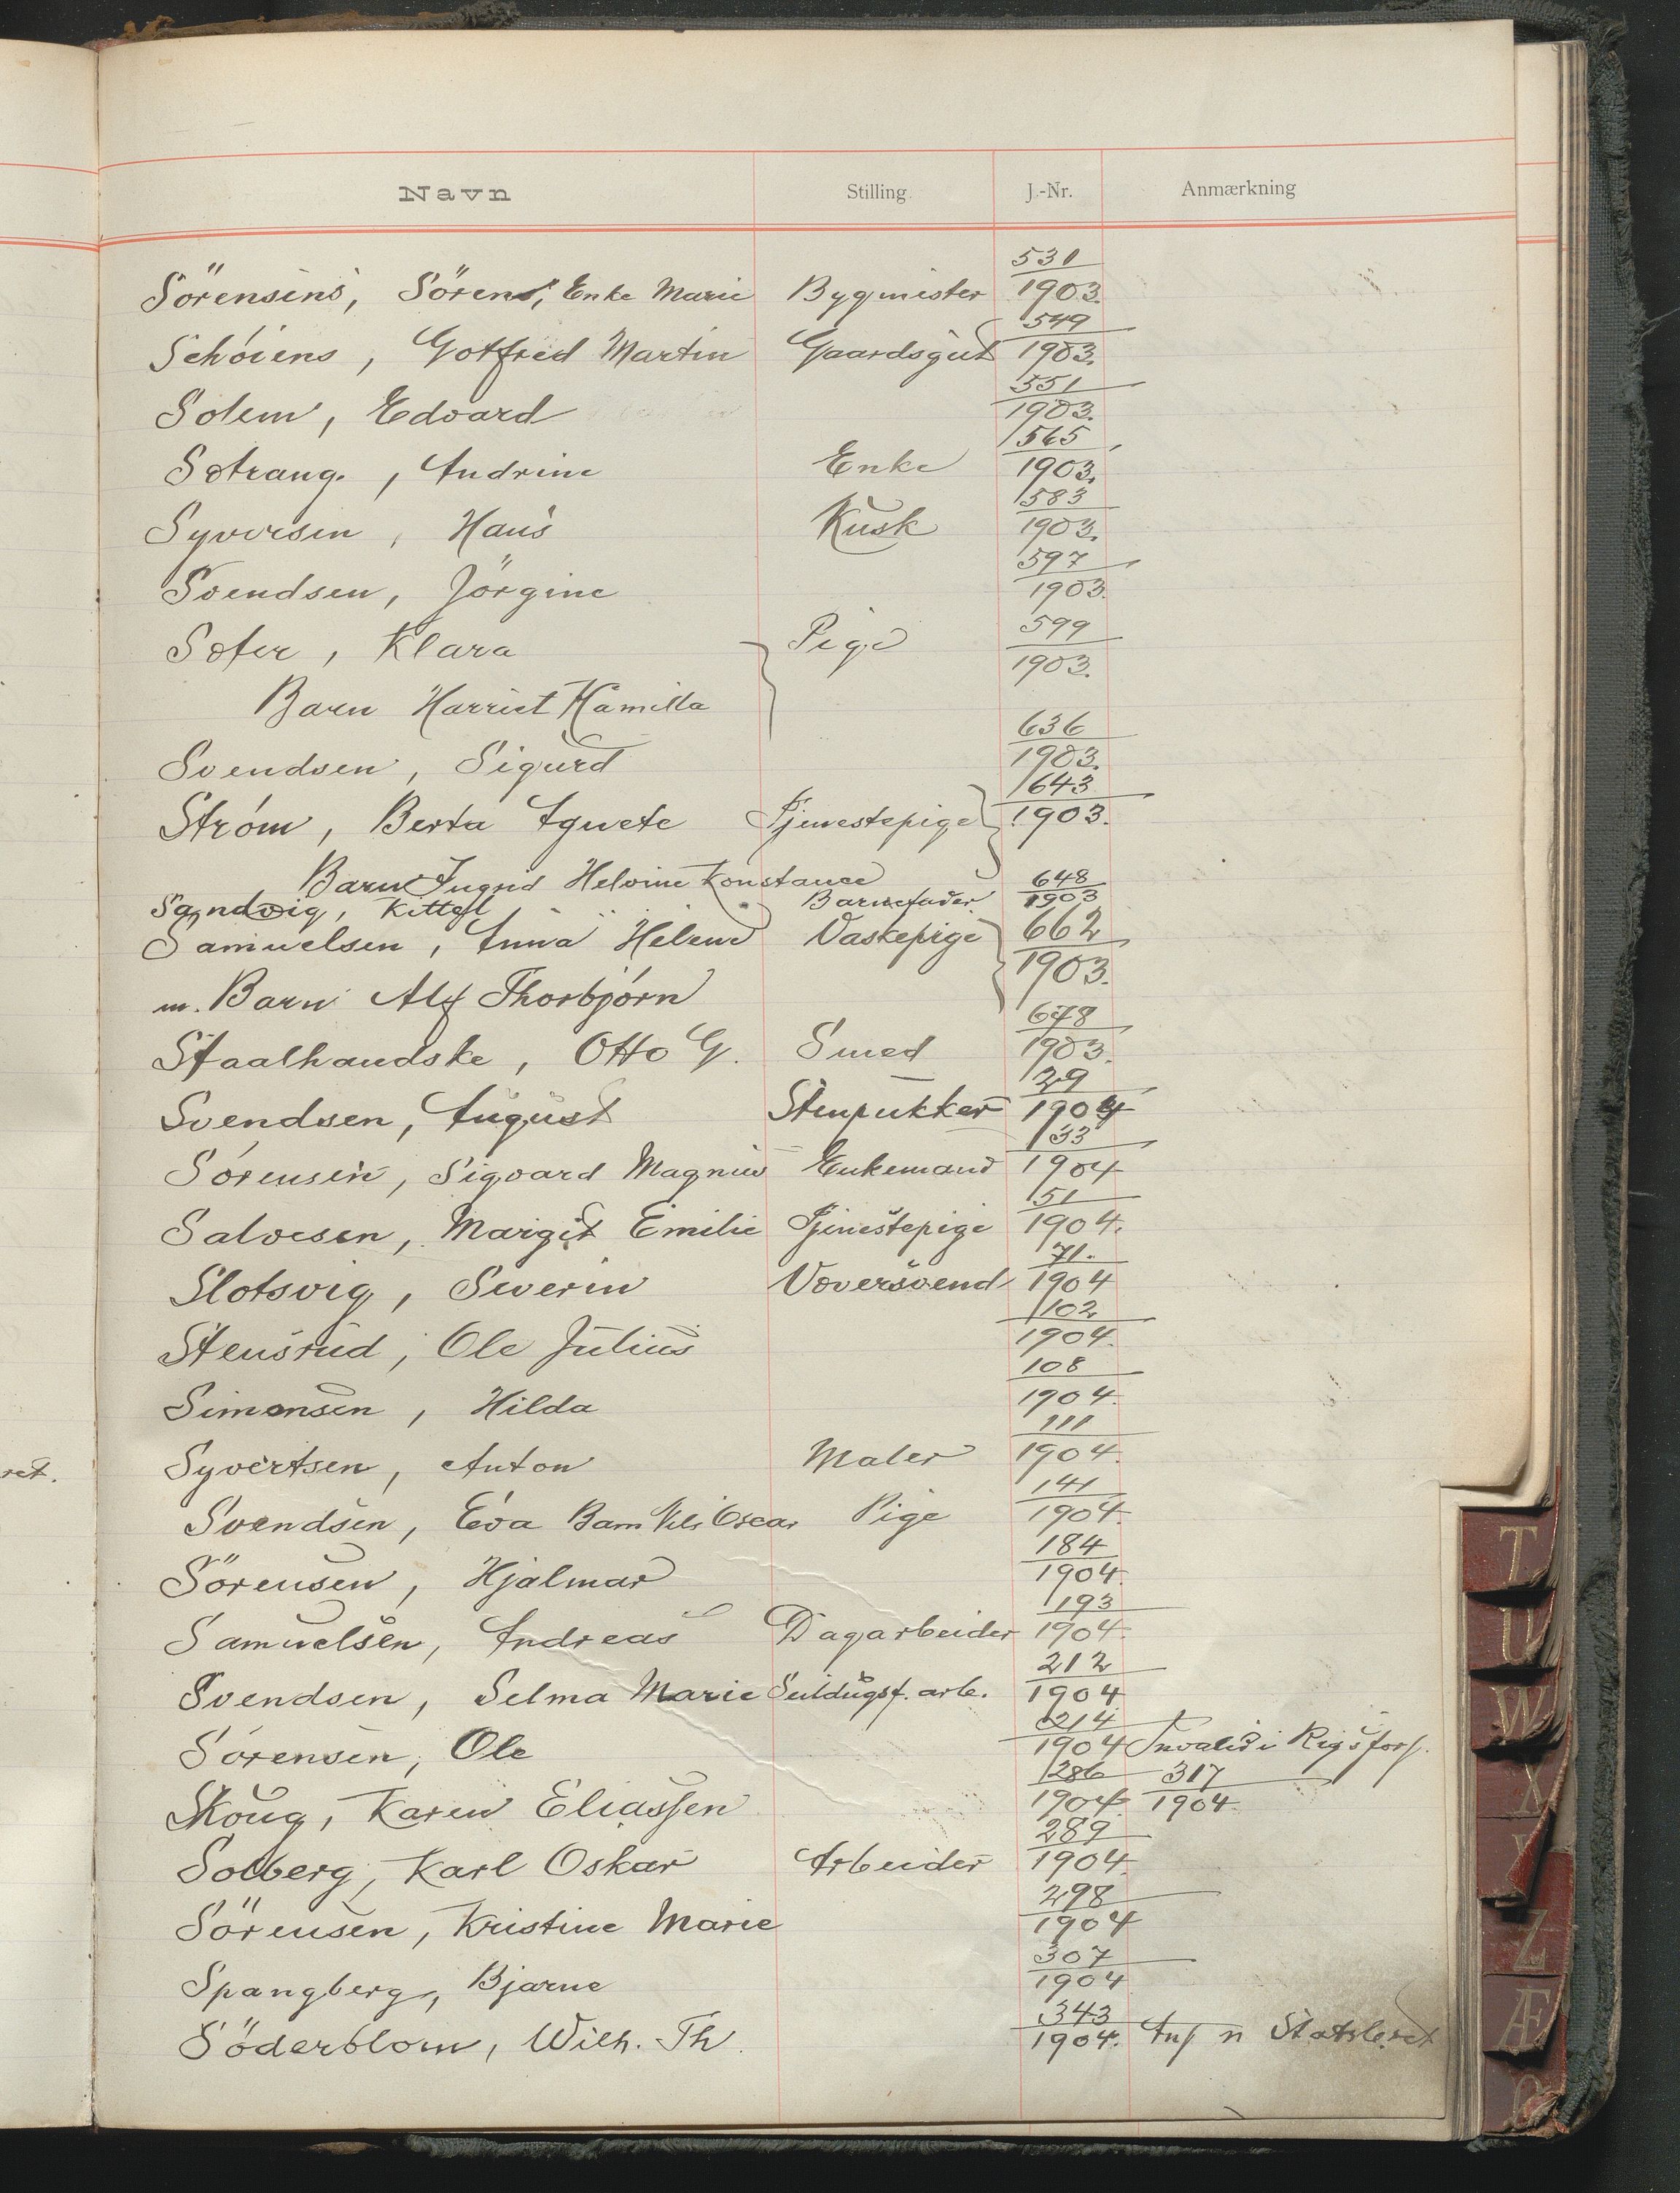 Navn Stilling J.-Nr. Anmærkning
Sörensens, Sörens, Enke Marie Bygmester 531/1903.
Schöiens, Gotfred Martin Gaardsgut 549/1903.
Solem, Edvard 551/1903.
Sætrang, Andrine Enke 565/1903.
Syversen, Hans Kusk 583/1903.
Svendsen, Jörgine 597/1903.
Sæter, Klara Pige 599/1903.
Barn Harriet Kamilla
Svendsen, Sigurd 636/1903.
Ström, Berta Agnete Tjenestepige 643/1903.
Barn Ingrid Helvine Konstance
Sandvig, Kittel Barnefader 648/1903
Samuelsen, Anna Helene Vaskepige 662/1903.
m. Barn Alf Thorbjörn
Staalhandske, Otto G. Smed 678/1903.
Svendsen, August Stenpukker 29/1904
Sörensen, Sigvard Magnus Enkemand 33/1904
Salvesen, Margit Emilie Tjenestepige 51/1904.
Slotsvig, Severin Væversvend 71./1904
Stensrud, Ole Julius 102/1904.
Simonsen, Hilda 108/1904.
Syvertsen, Anton Maler 111/1904.
Svendsen, Eva Barn Nils Oscar Pige 141/1904.
Sörensen, Hjalmar 184/1904.
Samuelsen, Andreas Dagarbeider 193/1904.
Svendsen, Selma Marie Seildugsf. arb. 212/1904
Sörensen, Ole 214/1904 Invalid i Rigsfors.
Skoug, Karen Eliassen 286/1904 317/1904.
Solberg, Karl Oskar Arbeider 289/1904
Sörensen, Kristine Marie 298/1904
Spangberg, Bjarne 307/1904
Söderblom, Wilh. Th. 343/1904. Statsleret
T
U
W
X
Y
Z
Æ